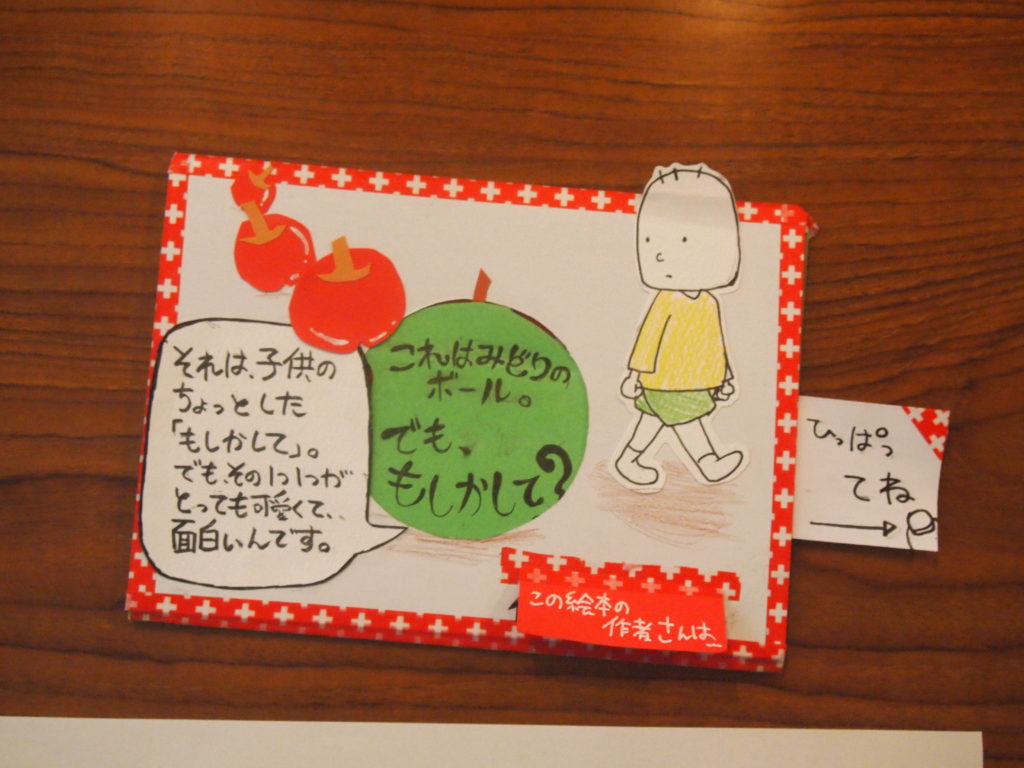 これはみどりの
ボール。
でも、
もしかして?
それは、子供の
ちょっとした
「もしかして」。
でも、その1つ1つが
とっても可愛くて、
面白いんです。
この絵本の
作者さんは…
ひっぱっ
てね